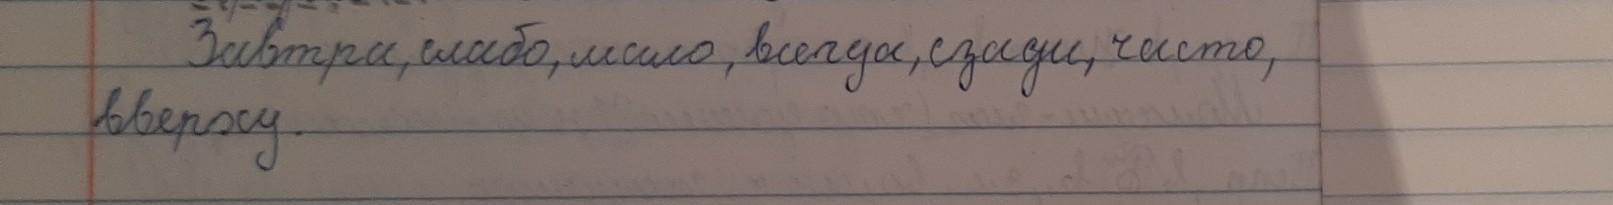 Завтра, слабо, мало, всегда, сзади, часто,
вверху.